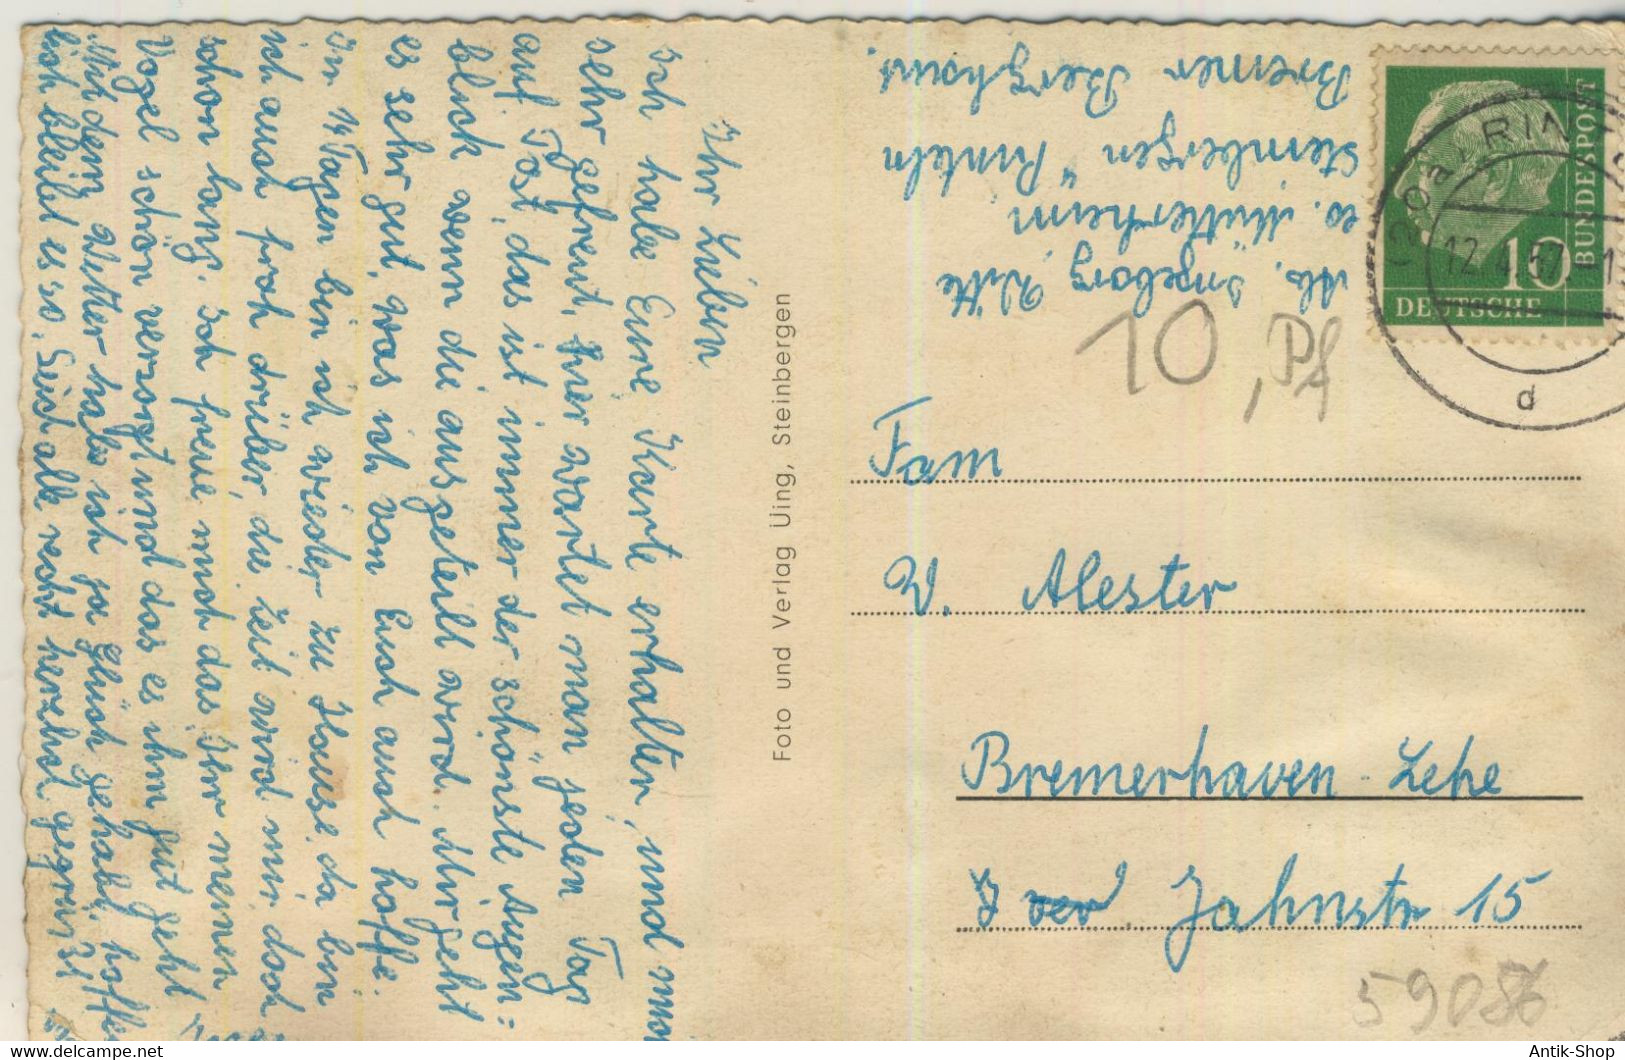 Ihr Lieben
Ich habe Eure Karte erhalten, und mich
sehr gefreut, hier wartet man jeden Tag
auf Post, das ist immer der schönste Augen=
blick wenn die ausgeteilt wird. Mir geht
es sehr gut, was ich von Euch auch hoffe.
In 14 Tagen bin ich wieder zu Hause, da bin
ich auch froh drüber, die Zeit wird mir doch
schon lang. Ich freue mich das Ihr meinen
Vogel schön versorgt und das es ihm gut geht
Mit dem Wetter habe ich ja Glück gehabt, hoffen
lich bleibt es so, Seid alle recht herzlich gegrüßt
Foto und Verlag Uing, Steinbergen
Ab. Ingeborg Witte
Mütterheim
Steinbergen ü Rinteln
Bremer Berghaus.
10 Pf
BUNDESPOST
10
DEUTSCHE
RIN
12.4.57.
d
Fam
W. Alester
Bremerhaven-Lehe
Jahnstr 15
59086
Antik-Shop